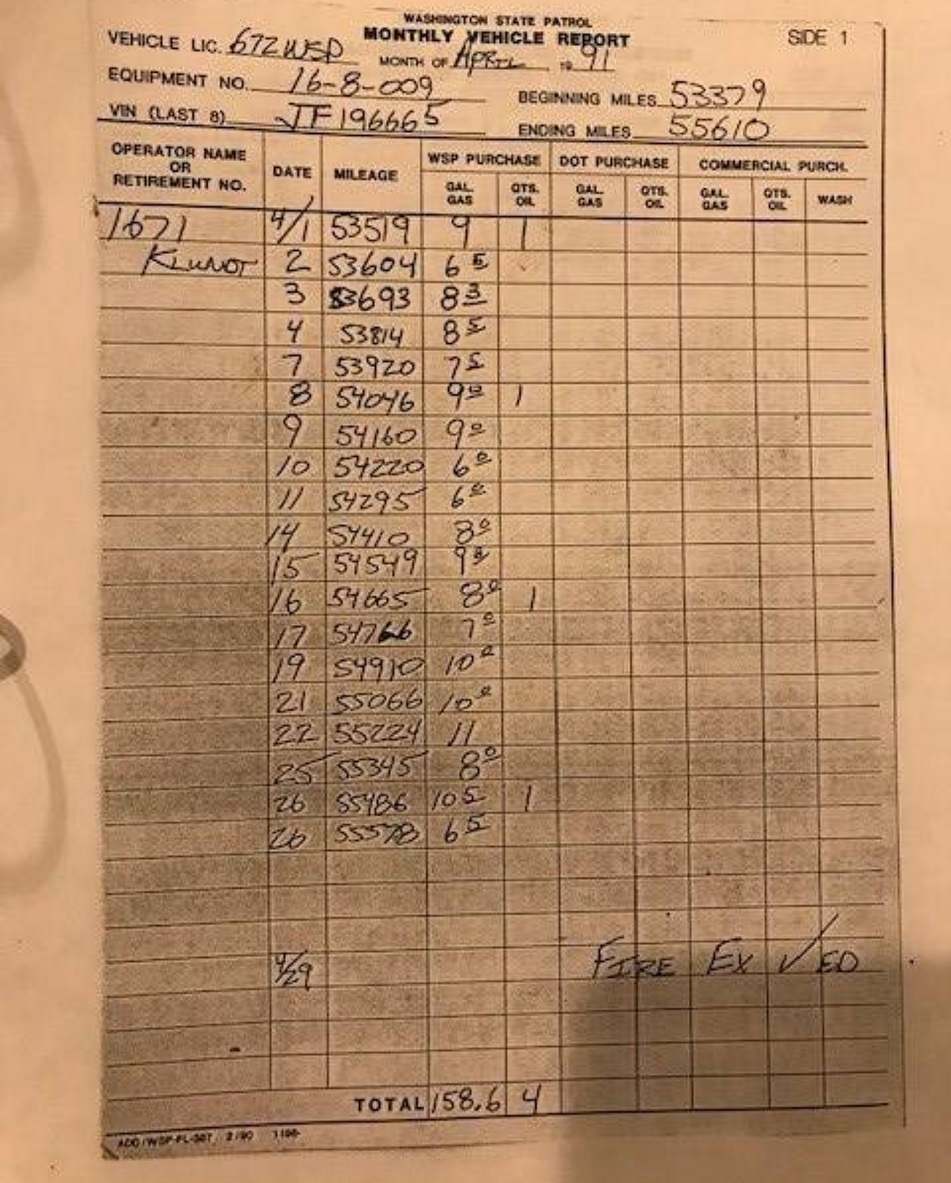 WASHINGTON STATE PATROL
MONTHLY VEHICLE REPORT SIDE 1
VEHICLE LIC. 672 WSP MONTH OF APRIL 19 91
EQUIPMENT NO. 16-8-009 BEGINNING MILES 53379
VIN (LAST 8) JF196665 ENDING MILES 55610
OPERATOR NAME OR RETIREMENT NO. DATE MILEAGE WSP PURCHASE DOT PURCHASE COMMERCIAL PURCH.
GAL. GAS QTS. OIL GAL. GAS QTS. OIL GAL. GAS QTS. OIL WASH
1671 4/1 53519 9 1
2 53604 6 5
3 53693 8 3
4 53814 8 5
7 53920 7 5
8 54046 9 0 1
9 54160 9 0
10 54220 6 0
11 54295 6 0
14 54410 8 0
15 54549 9
16 54665 8 0 1
17 54766 7 0
19 54910 10 0
21 55066 10 0
22 55224 11
25 55345 8 0
26 55486 10 5 1
26 55578 6 5
4/29 FIRE EX ✓ED
TOTAL 158.6 4
2/90